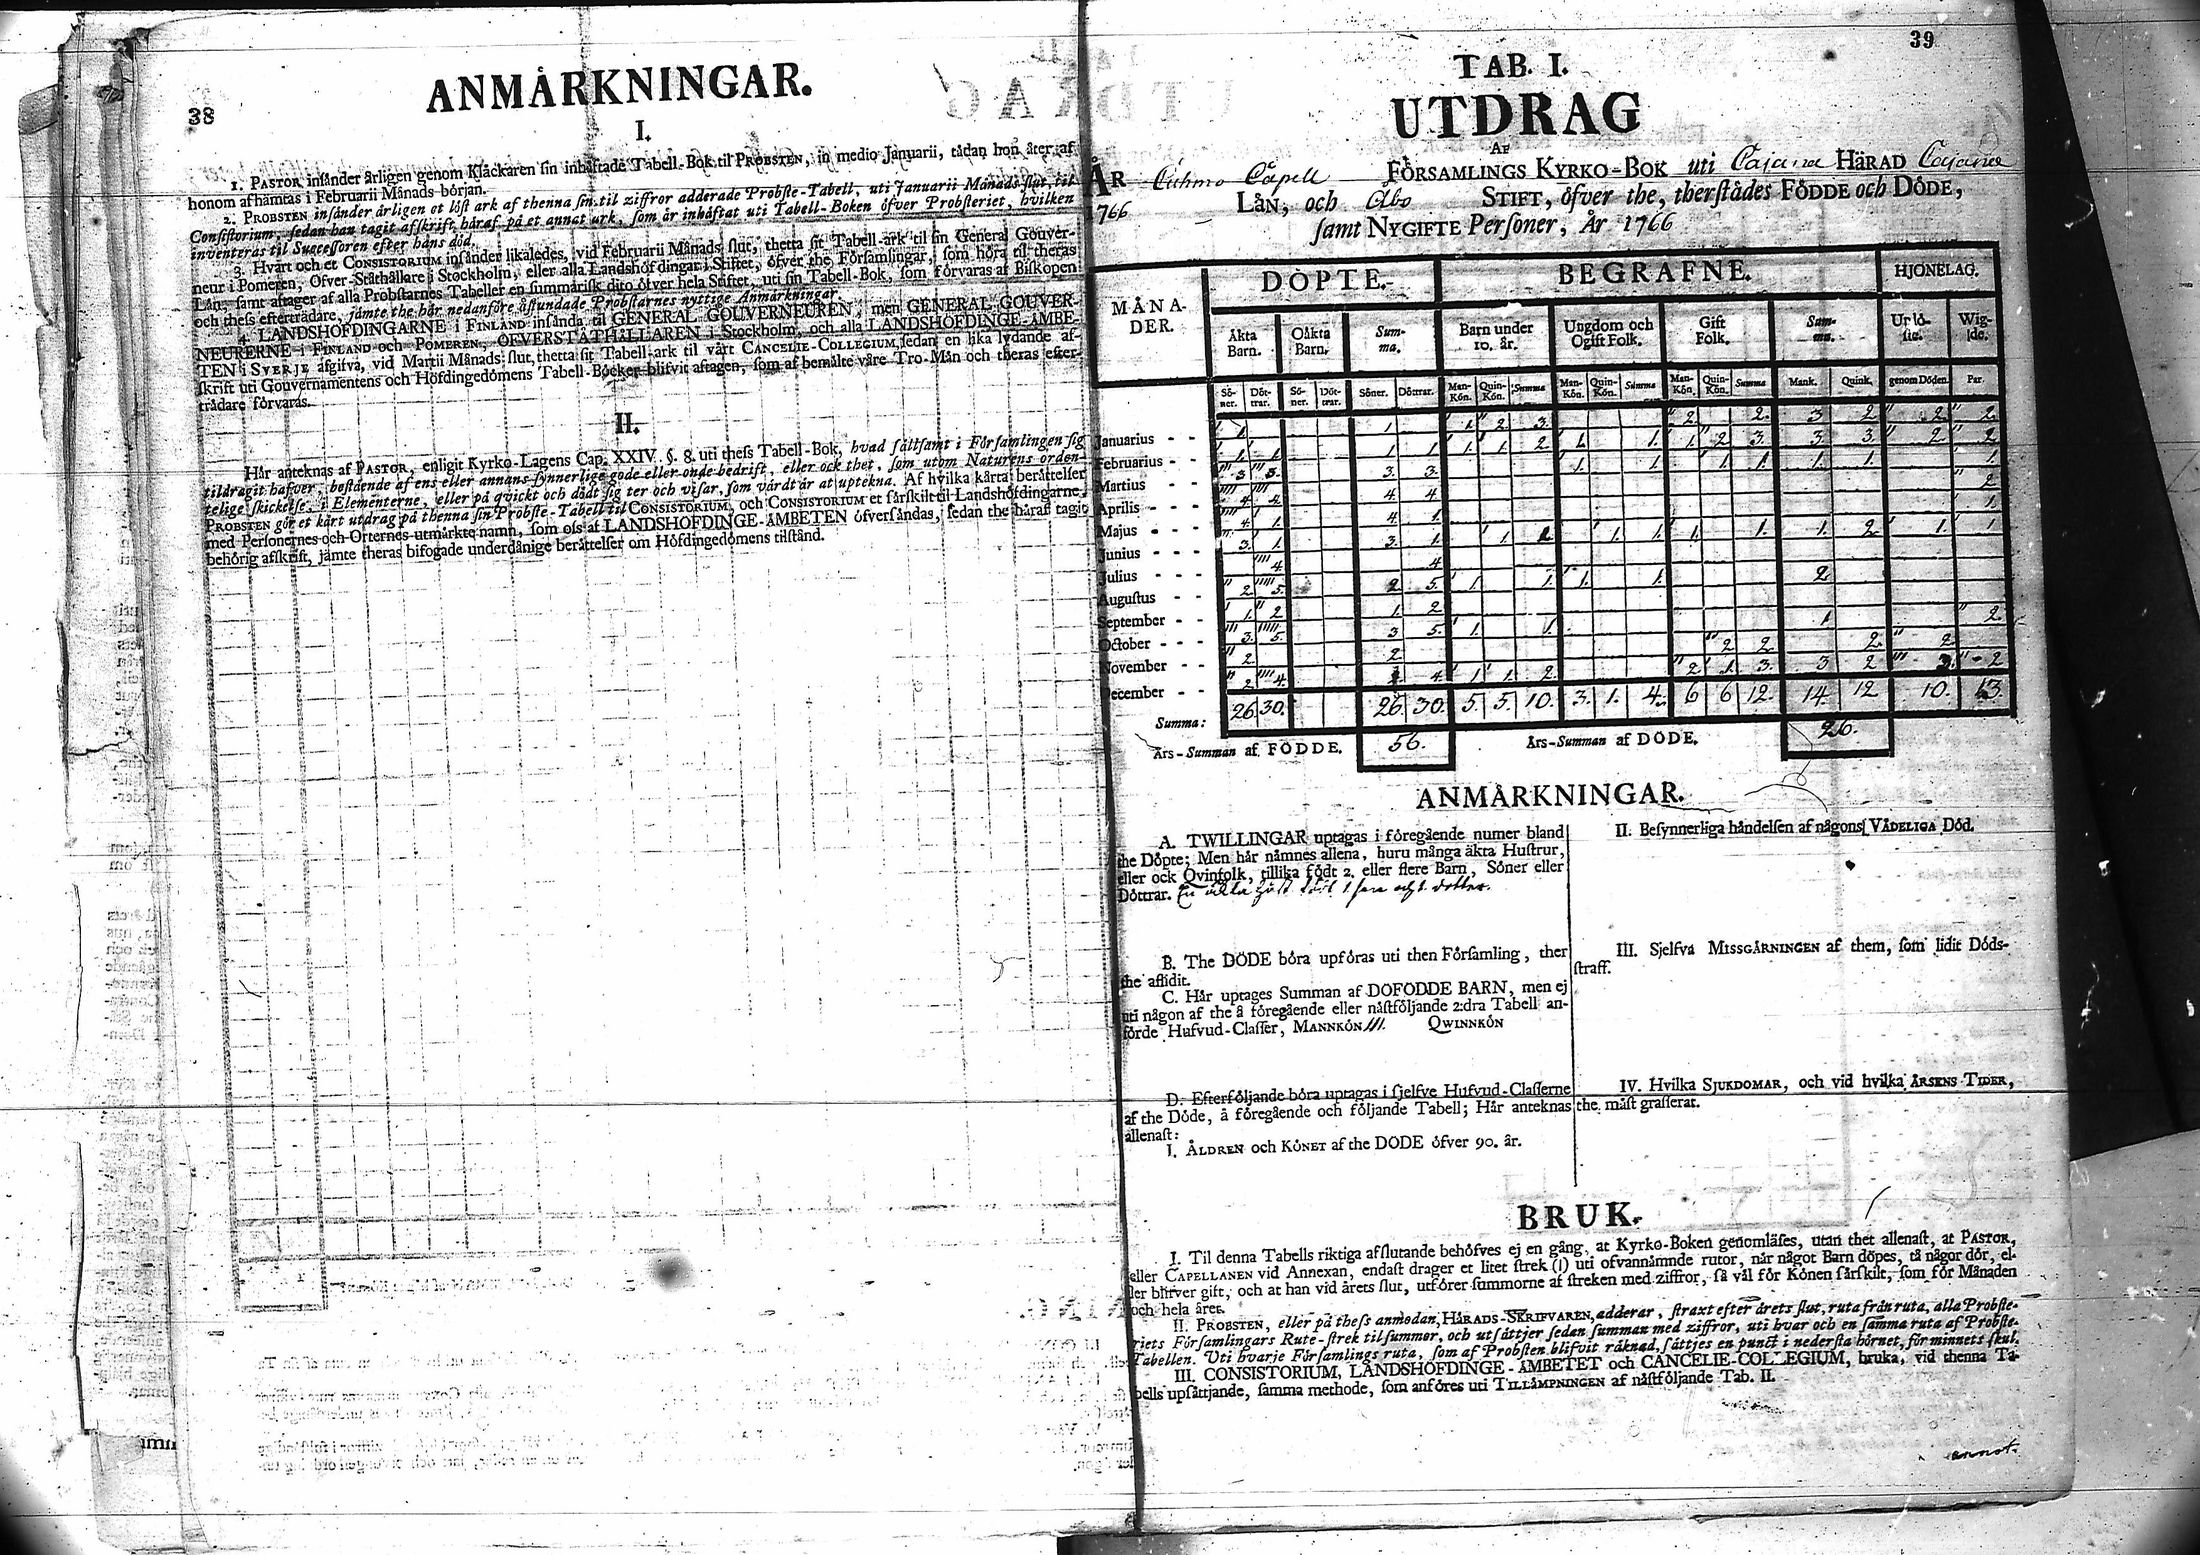 38
ANMÅRKNINGAR.
I.
1. PASTOR insånder årligen genom Klåckaren sin inhåftade Tabell-Bok til PROBSTEN, in medio Januarii, tådan hon åter af
honom afhåmtas i Februarii Månads början.
2. PROBSTEN insånder årligen et lôst ark af thenna sin til ziffror adderade Probste-Tabell, uti Januarii Månads slut, til
Consistorium, sedan han tagit afskrift håraf på et annat ark, som år inhåftat uti Tabell-Boken ôfver Probsteriet, hvilken
inventeras til Successoren efter hans dôd.
3. Hvart och et CONSISTORIUM insånder likaledes, vid Februarii Månads slut, thetta sit Tabell-ark til sin General Gouver-
neur i Pomeren, Ofver-Ståthållare i Stockholm, eller alla Landshôfdingar i Stiftet, ôfver the Fôrsamlingar, som hôra til theras
Lån, samt aftager af alla Probstarnes Tabeller en summårisk dito ôfver hela Stiftet, uti sin Tabell-Bok, som fôrvaras af Biskopen
och thess eftertrådare, jåmte the hår nedanfôre åstundade Probstarnes nyttige Anmårkningar.
4. LANDSHOFDINGARNE i FINLAND insånda til GENERAL GOUVERNEUREN, men GENERAL GOUVER-
NEURERNE i FINLAND och POMEREN, OFVERSTÅTHÅLLAREN i Stockholm, och alla LANDSHOFDINGE-ÅMBE-
TEN i SVERJE afgifva, vid Martii Månads slut, thetta sit Tabell-ark til vårt CANCELIE-COLLEGIUM, sedan en lika lydande af-
skrift uti Gouvernamentens och Hôfdingedômens Tabell-Bôcker blifvit aftagen, som af bemålte våre Tro-Mån och theras efter-
trådare fôrvaras.
II.
Hår anteknas af PASTOR, enligit Kyrko-Lagens Cap. XXIV. §. 8. uti thess Tabell-Bok, hvad sållsamt i Fôrsamlingen sig
tildragit hafver, bestående af ens eller annans synnerlige gode eller onde bedrift, eller ock thet, som utom Naturens orden-
telige skickelse, i Elementerne, eller på qvickt och dôdt sig ter och visar, som vårdt år at uptekna. Af hvilka kårta beråttelser
PROBSTEN gôr et kårt utdrag på thenna sin Probste-Tabell til CONSISTORIUM, och CONSISTORIUM et sårskilt til Landshôfdingarne,
med Personernes och Orternes utmårkte namn, som oss af LANDSHOFDINGE-ÅMBETEN ôfversåndas, sedan the håraf tagit
behôrig afskrift, jåmte theras bifogade underdånige beråttelser om Hôfdingedômens tilstånd.
39
TAB. I.
UTDRAG
AF
ÅR Cuhmo Capell FÔRSAMLINGS KYRKO-BOK uti Cajana HÄRAD Cajana
1766 LÅN, och Åbo STIFT, ôfver the, therstådes FÔDDE och DÔDE,
samt NYGIFTE Personer, År 1766
DÔPTE. BEGRAFNE. HJONELAG.
MÅNA-DER. Åkta Barn. Oåkta Barn. Sum-ma. Barn under 10. år. Ungdom och Ogift Folk. Gift Folk. Sum-ma. Uplô-ste. Wig-lde.
Sô-ner. Dôt-trar. Sô-ner. Dôt-trar. Sôner. Dôttrar. Man-Kôn. Quin-Kôn. Summa Man-Kôn. Quin-Kôn. Summa Man-Kôn. Quin-Kôn. Summa Mank. Quink. genom Dôden. Par.
Januarius - - 1. 1. 1. 2. 3. 2. 2. 3 2. 2. 2.
Februarius - - 1. 1. 1. 1. 1. 1. 2. 1. 1. 1. 2. 3. 3. 3. 2. 2
Martius - - 3. 3. 3. 3. 1. 1. 1. 1. 1. 1. 1.
Aprilis - - 4. 4. 4. 4. 2.
Majus - - 4. 1. 4. 1. 1.
Junius - - 3. 1. 3. 1. 1. 1. 1. 1. 1. 1. 2. 1. 1
Julius - - 4. 4.
Augustus - - 2. 5. 2 5. 1. 1. 1. 1. 2.
September - - 1. 2 1. 2.
October - - 3. 5. 3 5. 1. 1. 1. 2.
November - - 2. 2. 2 2. 2. 2.
December - - 2. 4. 4. 1. 1. 2. 2. 1. 3. 3 2 2
Summa: 26 30. 26. 30. 5. 5. 10. 3. 1. 4. 6 6 12. 14. 12 10. 13.
Års-Summan af FÖDDE. 56. Års-Summan af DÖDE. 26.
ANMÅRKNINGAR.
A. TWILLINGAR uptagas i fôregående numer bland
the Dôpte; Men hår nåmnes allena, huru många äkta Hustrur,
eller ock Qvinfolk, tillika fôdt 2. eller flere Barn, Sôner eller
Dôttrar. En äkta Hust. födt 1 son och 1. dotter.
B. The DÖDE bôra upfôras uti then Fôrsamling, ther
the aflidit.
C. Hår uptages Summan af DÔFÔDDE BARN, men ej
uti någon af the å fôregående eller nåstfôljande 2:dra Tabell an-
fôrde Hufvud-Classer, MANNKÔN III. QWINNKÔN
D. Efterfôljande bôra uptagas i sjelfve Hufvud-Classerne
af the Dôde, å fôregående och fôljande Tabell; Hår anteknas
allenast:
I. ÅLDREN och KÔNET af the DÖDE ôfver 90. år.
II. Besynnerliga håndelsen af någons VÅDELIGA Dôd.
III. Sjelfva MISSGÅRNINGEN af them, som lidit Dôds-
straff.
IV. Hvilka SJUKDOMAR, och vid hvilka ÅRSENS TIDER,
the måst grasserat.
BRUK.
I. Til denna Tabells riktiga afslutande behôfves ej en gång, at Kyrko-Boken genomlåses, utan thet allenast, at PASTOR,
eller CAPELLANEN vid Annexan, endast drager et litet strek (I) uti ofvannåmnde rutor, når något Barn dôpes, tå någor dôr, el-
ler blifver gift, och at han vid årets slut, utfôrer summorne af streken med ziffror, så vål fôr Kônen sårskilt, som fôr Månaden
och hela året.
II. PROBSTEN, eller på thess anmodan, HÅRADS-SKRIFVAREN, adderar, straxt efter årets slut, ruta från ruta, alla Probste-
riets Fôrsamlingars Rute-strek til summor, och utsåttjer sedan summan med ziffror, uti hvar och en samma ruta af Probste-
Tabellen. Uti hvarje Fôrsamlings ruta, som af Probsten blifvit råknad, såttjes en punct i nedersta hôrnet, fôr minnets skul.
III. CONSISTORIUM, LANDSHOFDINGE-ÅMBETET och CANCELIE-COLLEGIUM, bruka, vid thenna Ta-
bells upsåttjande, samma methode, som anfôres uti TILLÅMPNINGEN af nåstfôljande Tab. II.
annot.